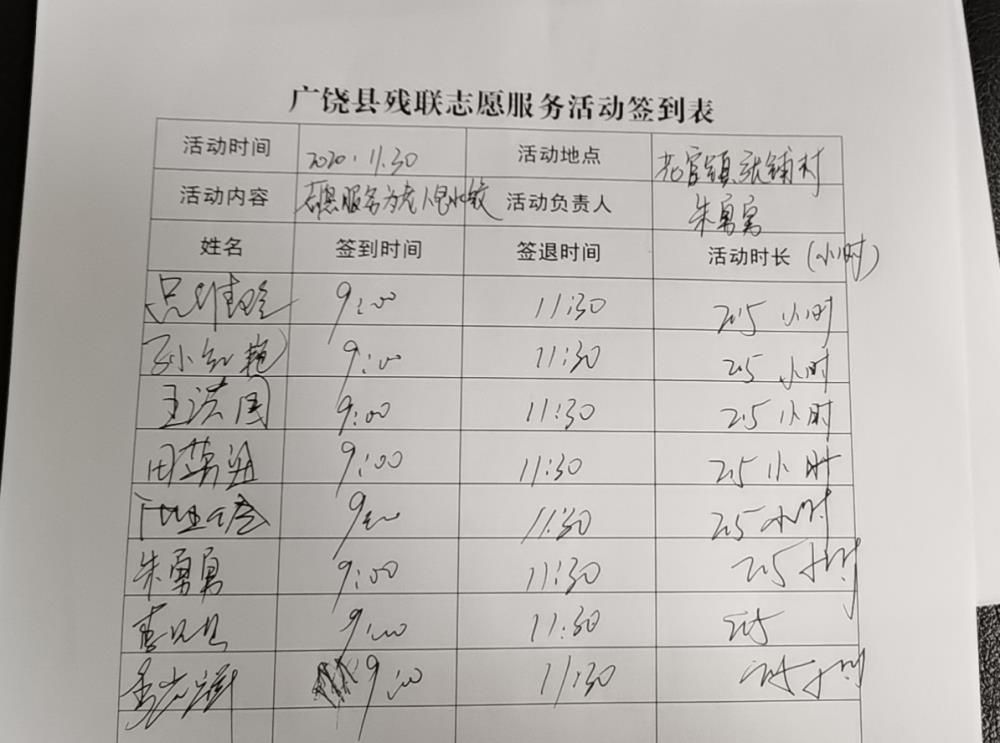 广饶县残联志愿服务活动签到表
活动时间 2020.11.30 活动地点 花官镇张铺村
活动内容 志愿服务为老人包水饺 活动负责人 朱勇勇
姓名 签到时间 签退时间 活动时长(小时)
9:00 11:30 2.5 小时
孙红艳 9:00 11:30 2.5 小时
王洪周 9:00 11:30 2.5 小时
田 9:00 11:30 2.5 小时
9:00 11:30 2.5 小时
朱勇勇 9:00 11:30 2.5 小时
9:00 11:30 2.5
9:00 11:30 2.5 小时